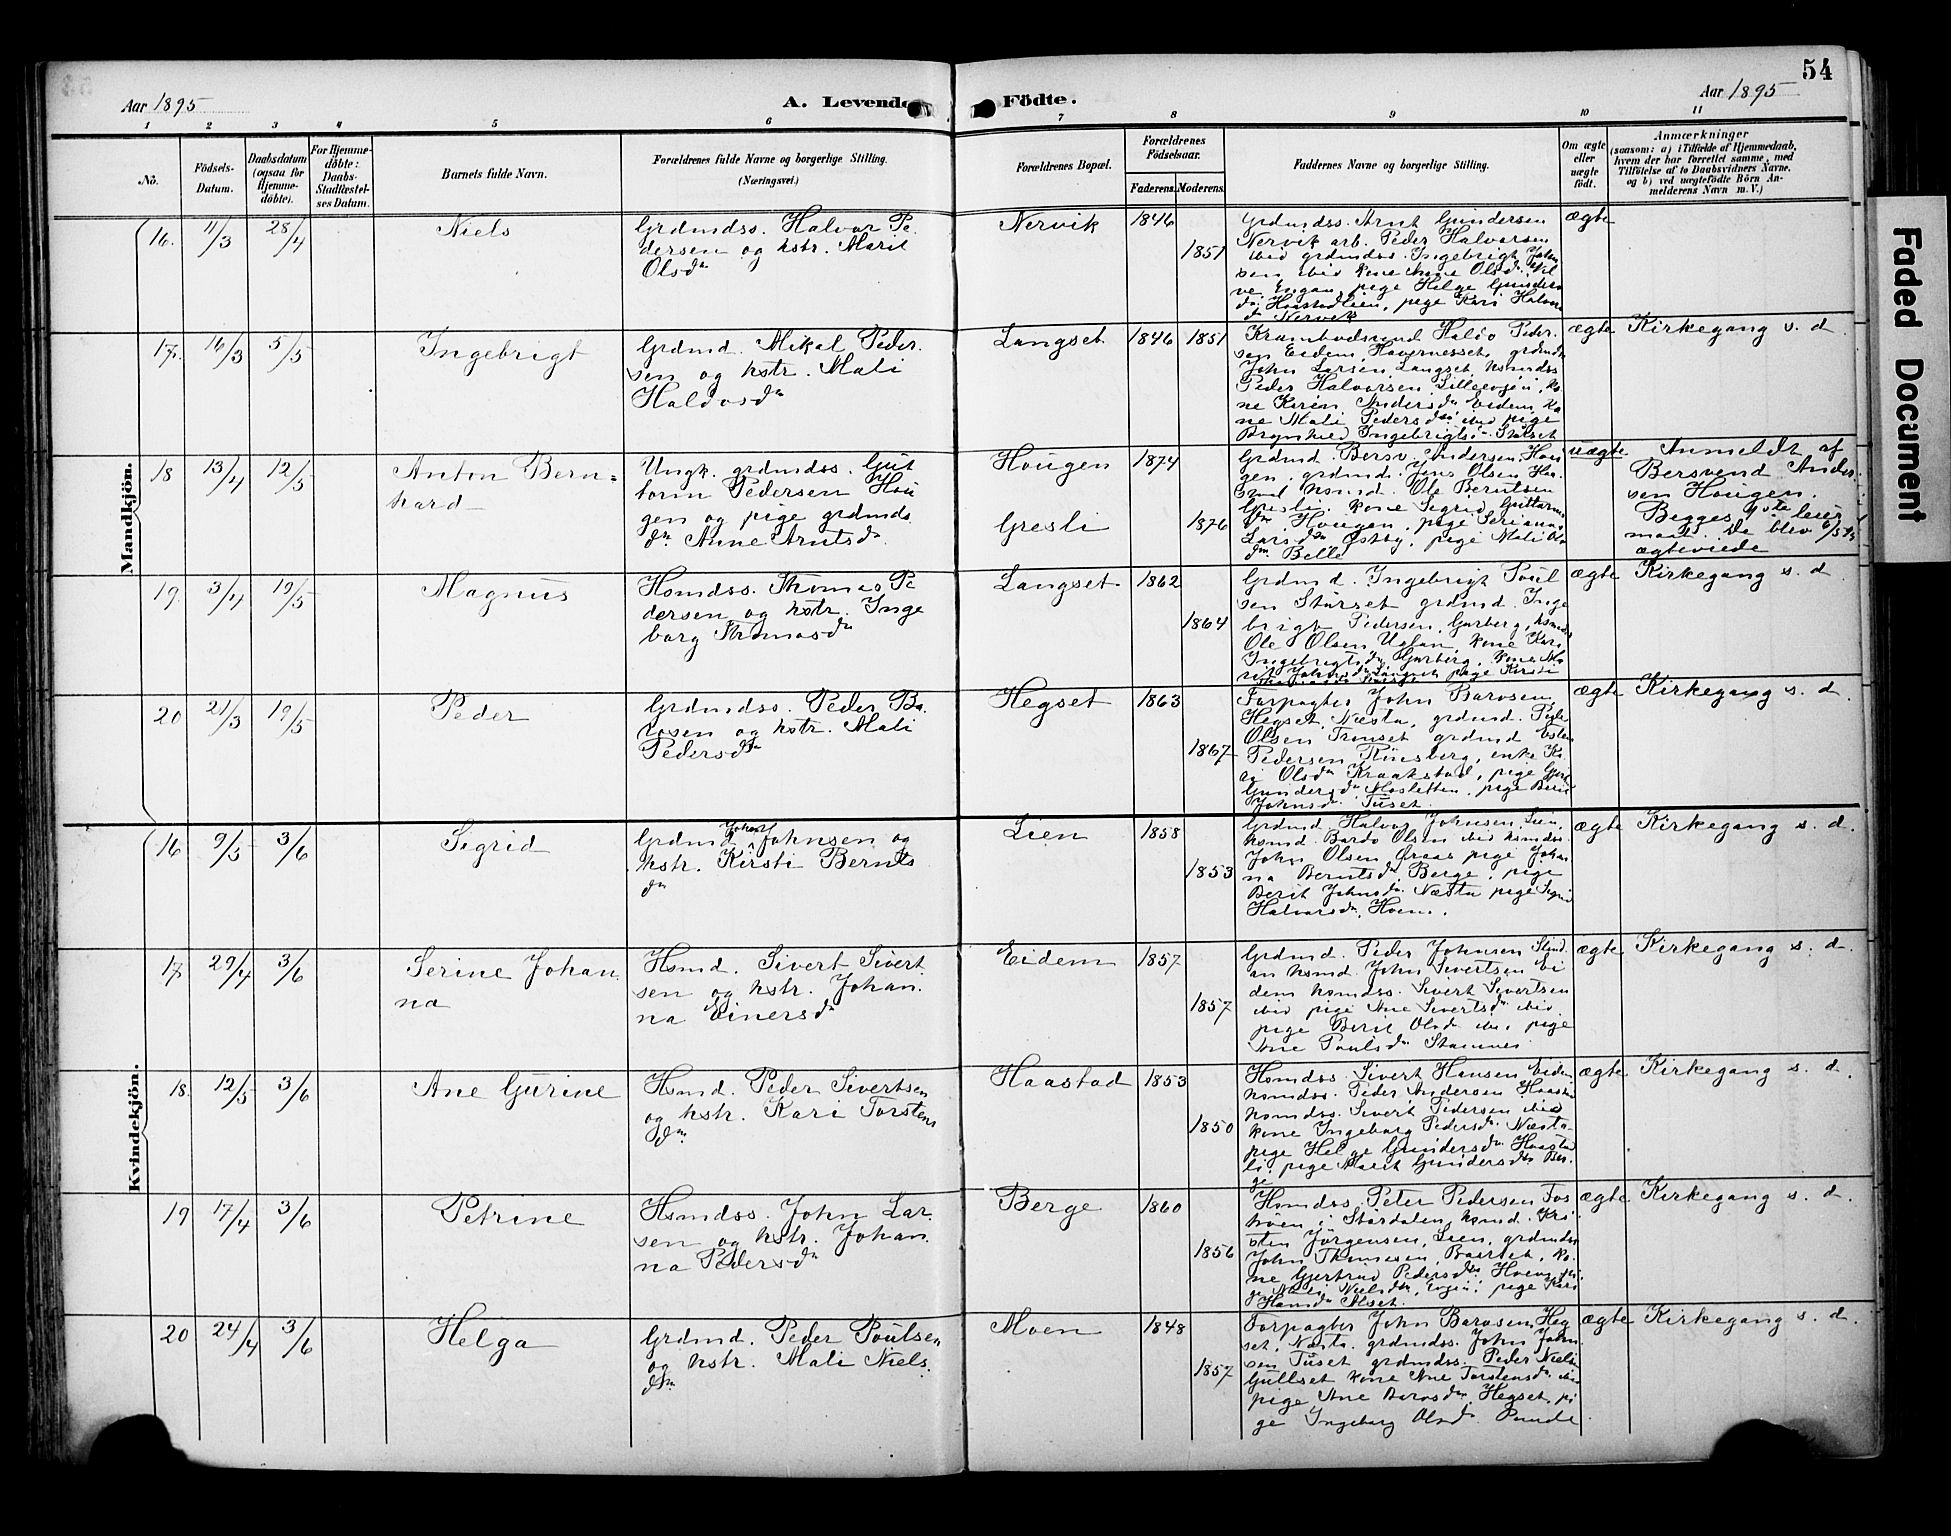 54
Aar 1895
A. Levende Födte.
Aar 1895
1 2 3 4 5 6 7 8 9 10 11
No.
Födsels-Datum.
Daabsdatum (ogsaa for Hjemmedöbte).
For Hjemmedöbte: Daabs-Stadfestelses Datum.
Barnets fulde Navn.
Forældrenes fulde Navne og borgerlige Stilling.
(Næringsvei.)
Forældrenes Bopæl.
Forældrenes Födselsaar.
Faderens. Moderens.
Faddernes Navne og borgerlige Stilling.
Om ægte eller uægte födt.
Anmærkninger
(saasom: a) i Tilfælde af Hjemmedaab,
hvem der har forrettet samme, med
Tilföielse af to Daabsvidners Navne.
og b) ved uægtefödte Börn Anmelderens Navn m. V.)
Mandkjön.
16. 11/3 28/4
Niels
Grdmdss. Halvor Pe
dersen og hstr. Marit
Olsdn
Nervik 1846
1851
Grdmdss. Arnt Gundersen
Nervik arb. Peder Halvorsen
ibid grdmdss. Ingebrigt John
sen ibid kone Ane Olsdn
Engan, pige Helge Gunders
dn Haastadlien, pige Kari Halvors
dn Nervik
ægte
17. 16/3 5/5
Ingebrigt
Grdmd. Mikal Peder
sen og hstr. Mali
Haldosdn
Langset 1846 1851
Krambodsvend Haldo Peder
sen Eidem, grdmds
John Larsen Langset, hsmdss
Peder Halvorsen Lilleevjen, ko
ne Karen Andersdn Eidem, ko
ne Mali Pedersdn ibid pige
Brynhild Ingebrigtsdn Stutset
ægte
Kirkegang s. d.
18 13/4 12/5
Anton Bern=
hard
Ungk. grdmdss. Gut
torm Pedersen Hou
gen og pige grdmds
dn Anne Arntsdn
Hougen 1874
Gresli 1876
Grdmd. Bersv. Andersen Hou
gen, grdmd. Jens Olsen
hsmd. Ole Berntsen
Gresli, kone Sigrid Guttorms
dn Hougen, pige Seriana
Larsdn Østby, pige Mali Ols
dn Belle
uægte
Anmeldt af
Bersvend Ander
sen Hougen.
Begges 1ste leier
maal. De blev 6/5 95
ægteviede
19. 3/4 19/5
Magnus
Hsmdss. Thomas Pe
dersen og hstr. Inge
borg Thomasdn
Langset 1862
1864
Grdmd. Ingebrigt Poul
sen Stutset grdmd. Inge
brigt Pedersen, Garberg, hsmdss
Ole Olsen Uglan, kone Kari
Ingebrigtsdn Garberg, kone Ma
rit Johnsdn Langset pige Kirsti
ægte
Kirkegang s. d.
20 21/3 19/5
Peder
Grdmdss. Peder Ba
rosen og hstr. Mali
Pedersdn
Hegset 1863
1867
Forpagter John Barosen
Hegset Næsta, grdmd. Peder
Olsen Tronset grdmd Esten
Pedersen Rønsberg, enke Ka
ri Olsdn Kraakstad, pige
Gundersdn Mosletten, pige Berit
Johnsdn Tuset.
ægte
Kirkegang s. d.
Kvindekjön.
16 9/5 3/6
Sigrid
Grdmd John Johnsen og
hstr. Kirsti Bernts
dn
Lien 1858
1853
Grdmd. Halvor Johnsen Lien,
hsmd. Bardo Olsen ibid hsmdss.
John Olsen Øraas pige Johan
na Berntsdn Berge, pige
Berit Johnsdn Næsta pige Sigrid
Halvorsdn, Hoem.
ægte
Kirkegang s. d.
17 29/4 3/6
Serine Johan
na
Hsmd. Sivert Sivert
sen og hstr. Johan
na Einersdn
Eidem 1857
1857
Grdmd. Peder Johnsen Slind
an hsmd John Sivertsen Ei
dem hsmdss. Sivert Sivertsen
ibid pige Ane Sivertsdn ibid
pige Berit Olsdn ibi, pige
Ane Poulsdn Stamnes
ægte
Kirkegang s. d.
18. 12/5 3/6
Ane Gurine
Hsmd. Peder Sivertsen
og hstr. Kari Torstens
dn
Haastad 1853
1850
Hsmdss. Sivert Hansen Eidem
hsmdss. Peder Andersen Haastad
hsmdss. Sivert Pedersen ibid
kone Ingeborg Pedersdn Næsta
pige Helge Gundersdn Haastad
li, pige Marit Gundersdn Ber
ge
ægte
Kirkegang s. d.
19 17/4 3/6
Petrine
Hsmdss. John Lar
sen og hstr. Johan
na Pedersdn
Berge 1860
1856
Hsmdss. Peter Pedersen Fos
moen i Stördalen, hsmd. Kri
sten Jörgensen, Lien, grdmdss
John Thomesen, Baarset, ko
ne Gjertrud Pedersdn Hoem, pi
ge Mali Nielsdn, Evjen, pige Kari
Hansdn Alset.
ægte
Kirkegang s. d.
20 24/4 3/6
Helga
Grdmd. Peder Poulsen
og hstr. Mali Niels
dn
Moen 1848
1857
Forpagter John Barosen Heg
set, Næsta. grdmdss. John John
sen Tuset grdmdss. Peder Niels
Gullset kone Ane Torstensdn ibid
pige Ane Barosdn Hegset, pi
ge Ingeborg Olsdn Runde
ægte
Kirkegang s. d.
Faded Document